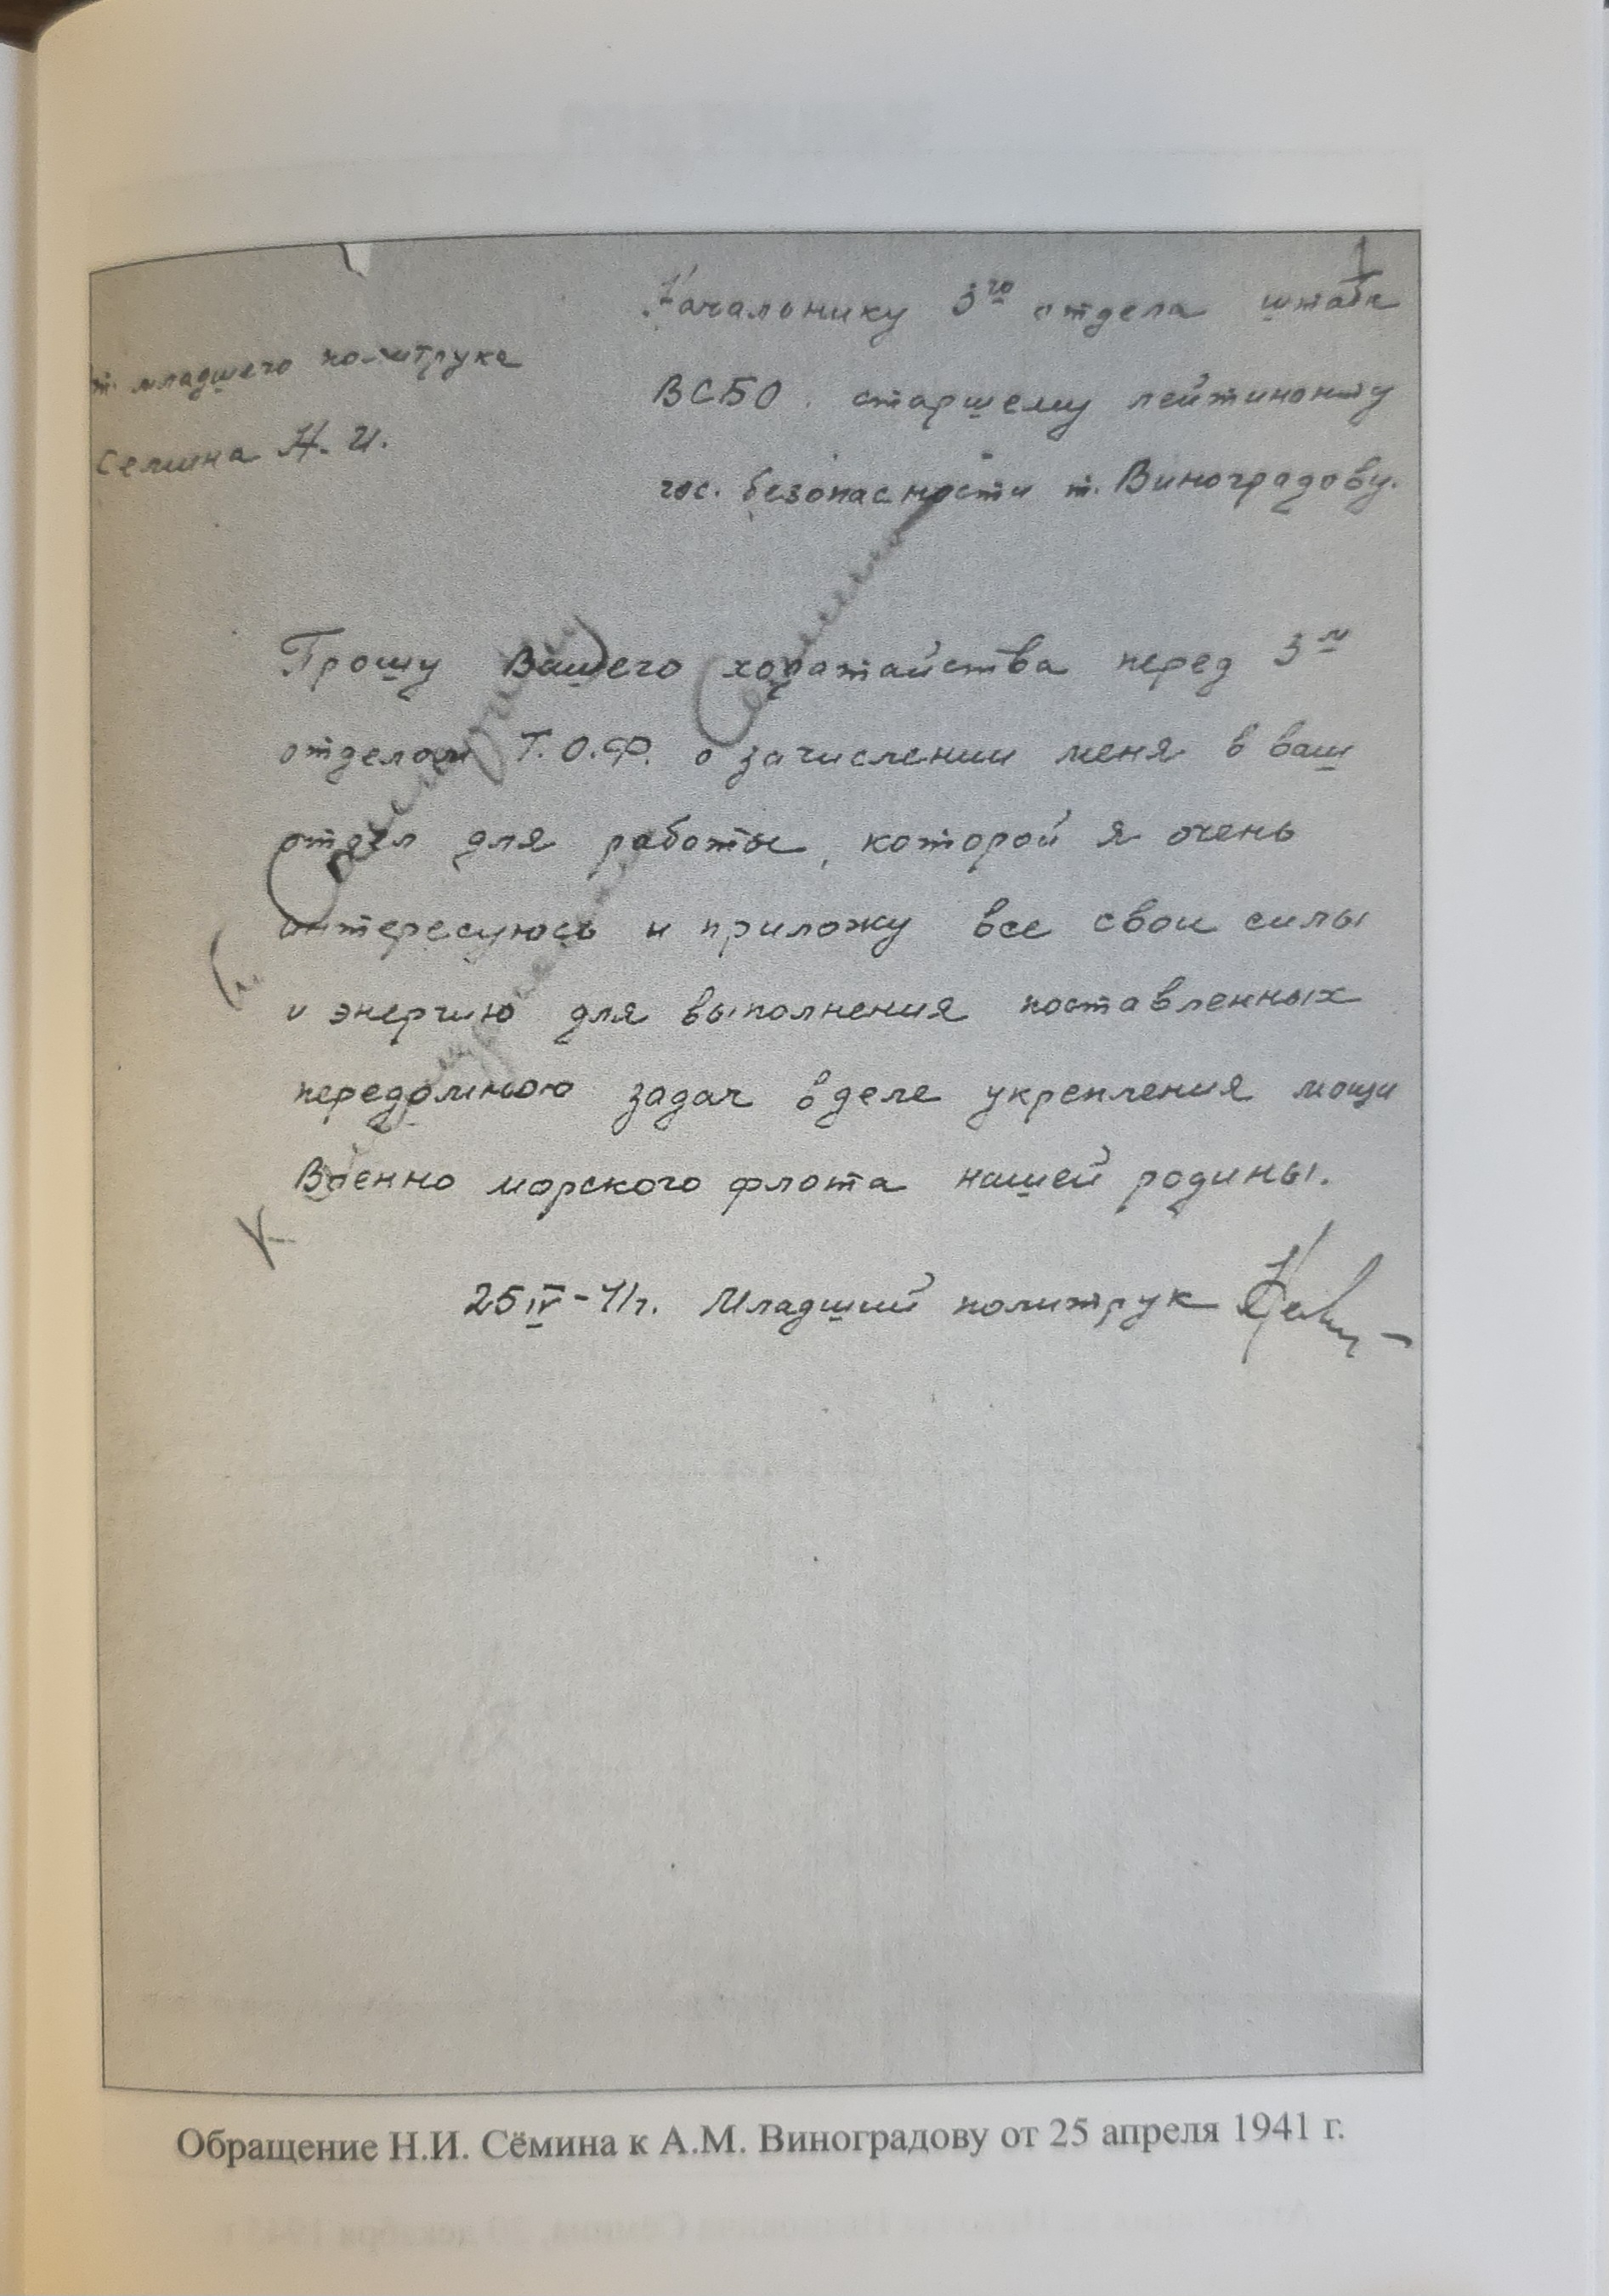 1
Начальнику 3го отдела штаба
ВСБО. старшему лейтинонту
гос. безопасности т. Виноградову.
от. младшего политрука
Семина Н. И.
Прошу Вашего ходатайства перед 3м
отделом Т.О.Ф. о зачислении меня в ваш
отдел для работы, которой я очень
интересуюсь и приложу все свои силы
и энергию для выполнения поставленных
передомною задач в деле укрепления мощи
Военно морского флота нашей родины.
25 IV-41г. Младший политрук
Обращение Н.И. Сёмина к А.М. Виноградову от 25 апреля 1941 г.